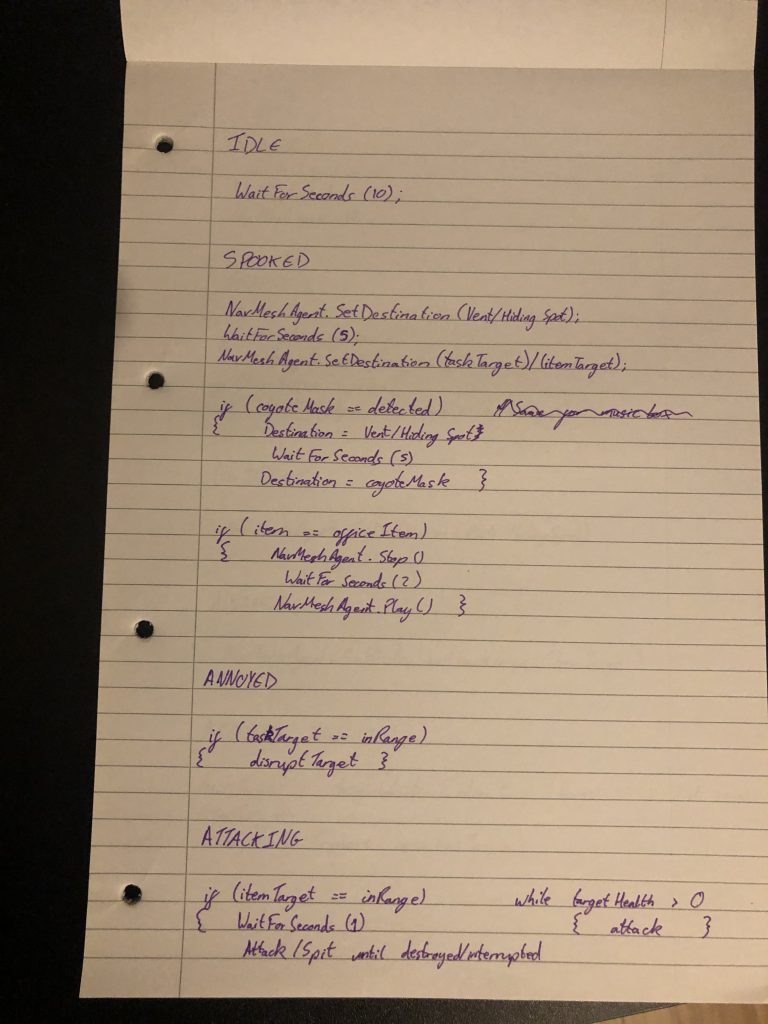 IDLE
WaitForSeconds (10);
SPOOKED
NavMeshAgent.SetDestination (Vent/Hiding Spot);
WaitForSeconds (5);
NavMeshAgent.SetDestination (taskTarget)/(itemTarget);
if (coyoteMask == detected)
{ Destination = Vent/Hiding Spot
WaitForSeconds (5)
Destination = coyoteMask }
if (item == officeItem)
{ NavMeshAgent.Stop()
WaitForSeconds (2)
NavMeshAgent.Play() }
ANNOYED
if (taskTarget == inRange)
{ disruptTarget }
ATTACKING
if (itemTarget == inRange) while targetHealth > 0
{ WaitForSeconds (1) { attack }
Attack/Spit until destroyed/interrupted